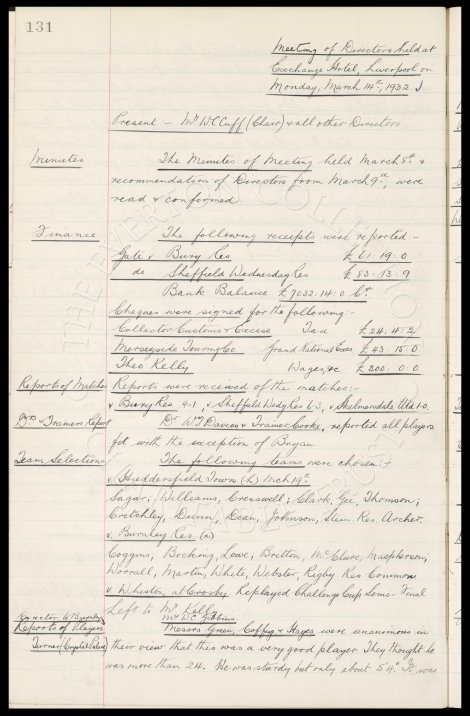 131
Meeting of Directors held at
Exchange Hotel, Liverpool on
Monday, March 14th, 1932
Present - Mr W C Cuff (Chair) & all other Directors
Minutes The Minutes of Meeting held March 8th &
recommendation of Directors from March 9th, were
read & confirmed
Finance The following receipts were reported:-
Gate v Bury Res £61.19.0
do Sheffield Wednesday Res £83.13.9
Bank Balance £7032.14.0 Cr.
Cheques were signed for the following:-
Collector Customs & Excise Tax £24.4.2
Merseyside Touring Co. Grand National £43.15.0
Theo Kelly Wages, &c £300.0.0
Reports of Matches Reports were received of the matches:-
v Bury Res 4-1, v Sheffield Wedy Res 6-3, v Skelmersdale Utd 1-0.
Drs & Trainers Report Dr Wm Davies & Trainer Cooke, reported all players
fit with the exception of Bryan
Team Selections The following teams were chosen:-
v Huddersfield Town (h) Mch 19th
Sagar; Williams, Cresswell; Clark, Gee, Thomson;
Critchley, Dunn, Dean, Johnson, Stein Res. Archer.
v Burnley Res (a)
Coggins, Bocking, Lowe, Britton, McClure, Macpherson,
Worrall, Martin, White, Webster, Rigby Res Common
v Whiston at Crosby Replayed Challenge Cup Semi-Final
Left to Mr Kelly
Director to Burnley Mr W C Gibbins
Reports of Players Messrs Green, Coffey & Hayes were unanimous in
Turner (Crystal Palace) their view that this was a very good player. They thought he
was more than 24. He was sturdy but only about 5'4". It was
THE EVERTON COLLECTION